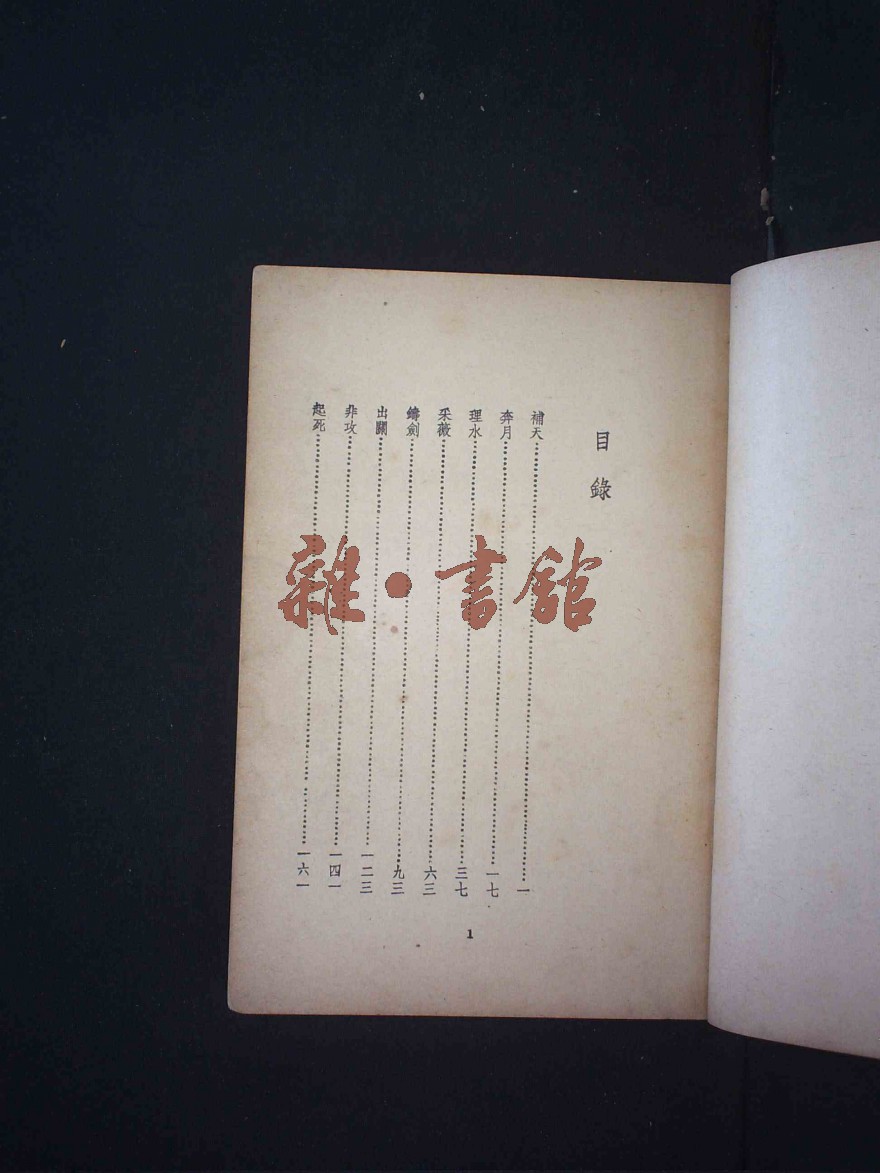 目錄
補天……………………………………一
奔月……………………………………一七
理水……………………………………三七
采薇……………………………………六三
鑄劍……………………………………九三
出關……………………………………一二三
非攻……………………………………一四一
起死……………………………………一六一
1
雜·書館